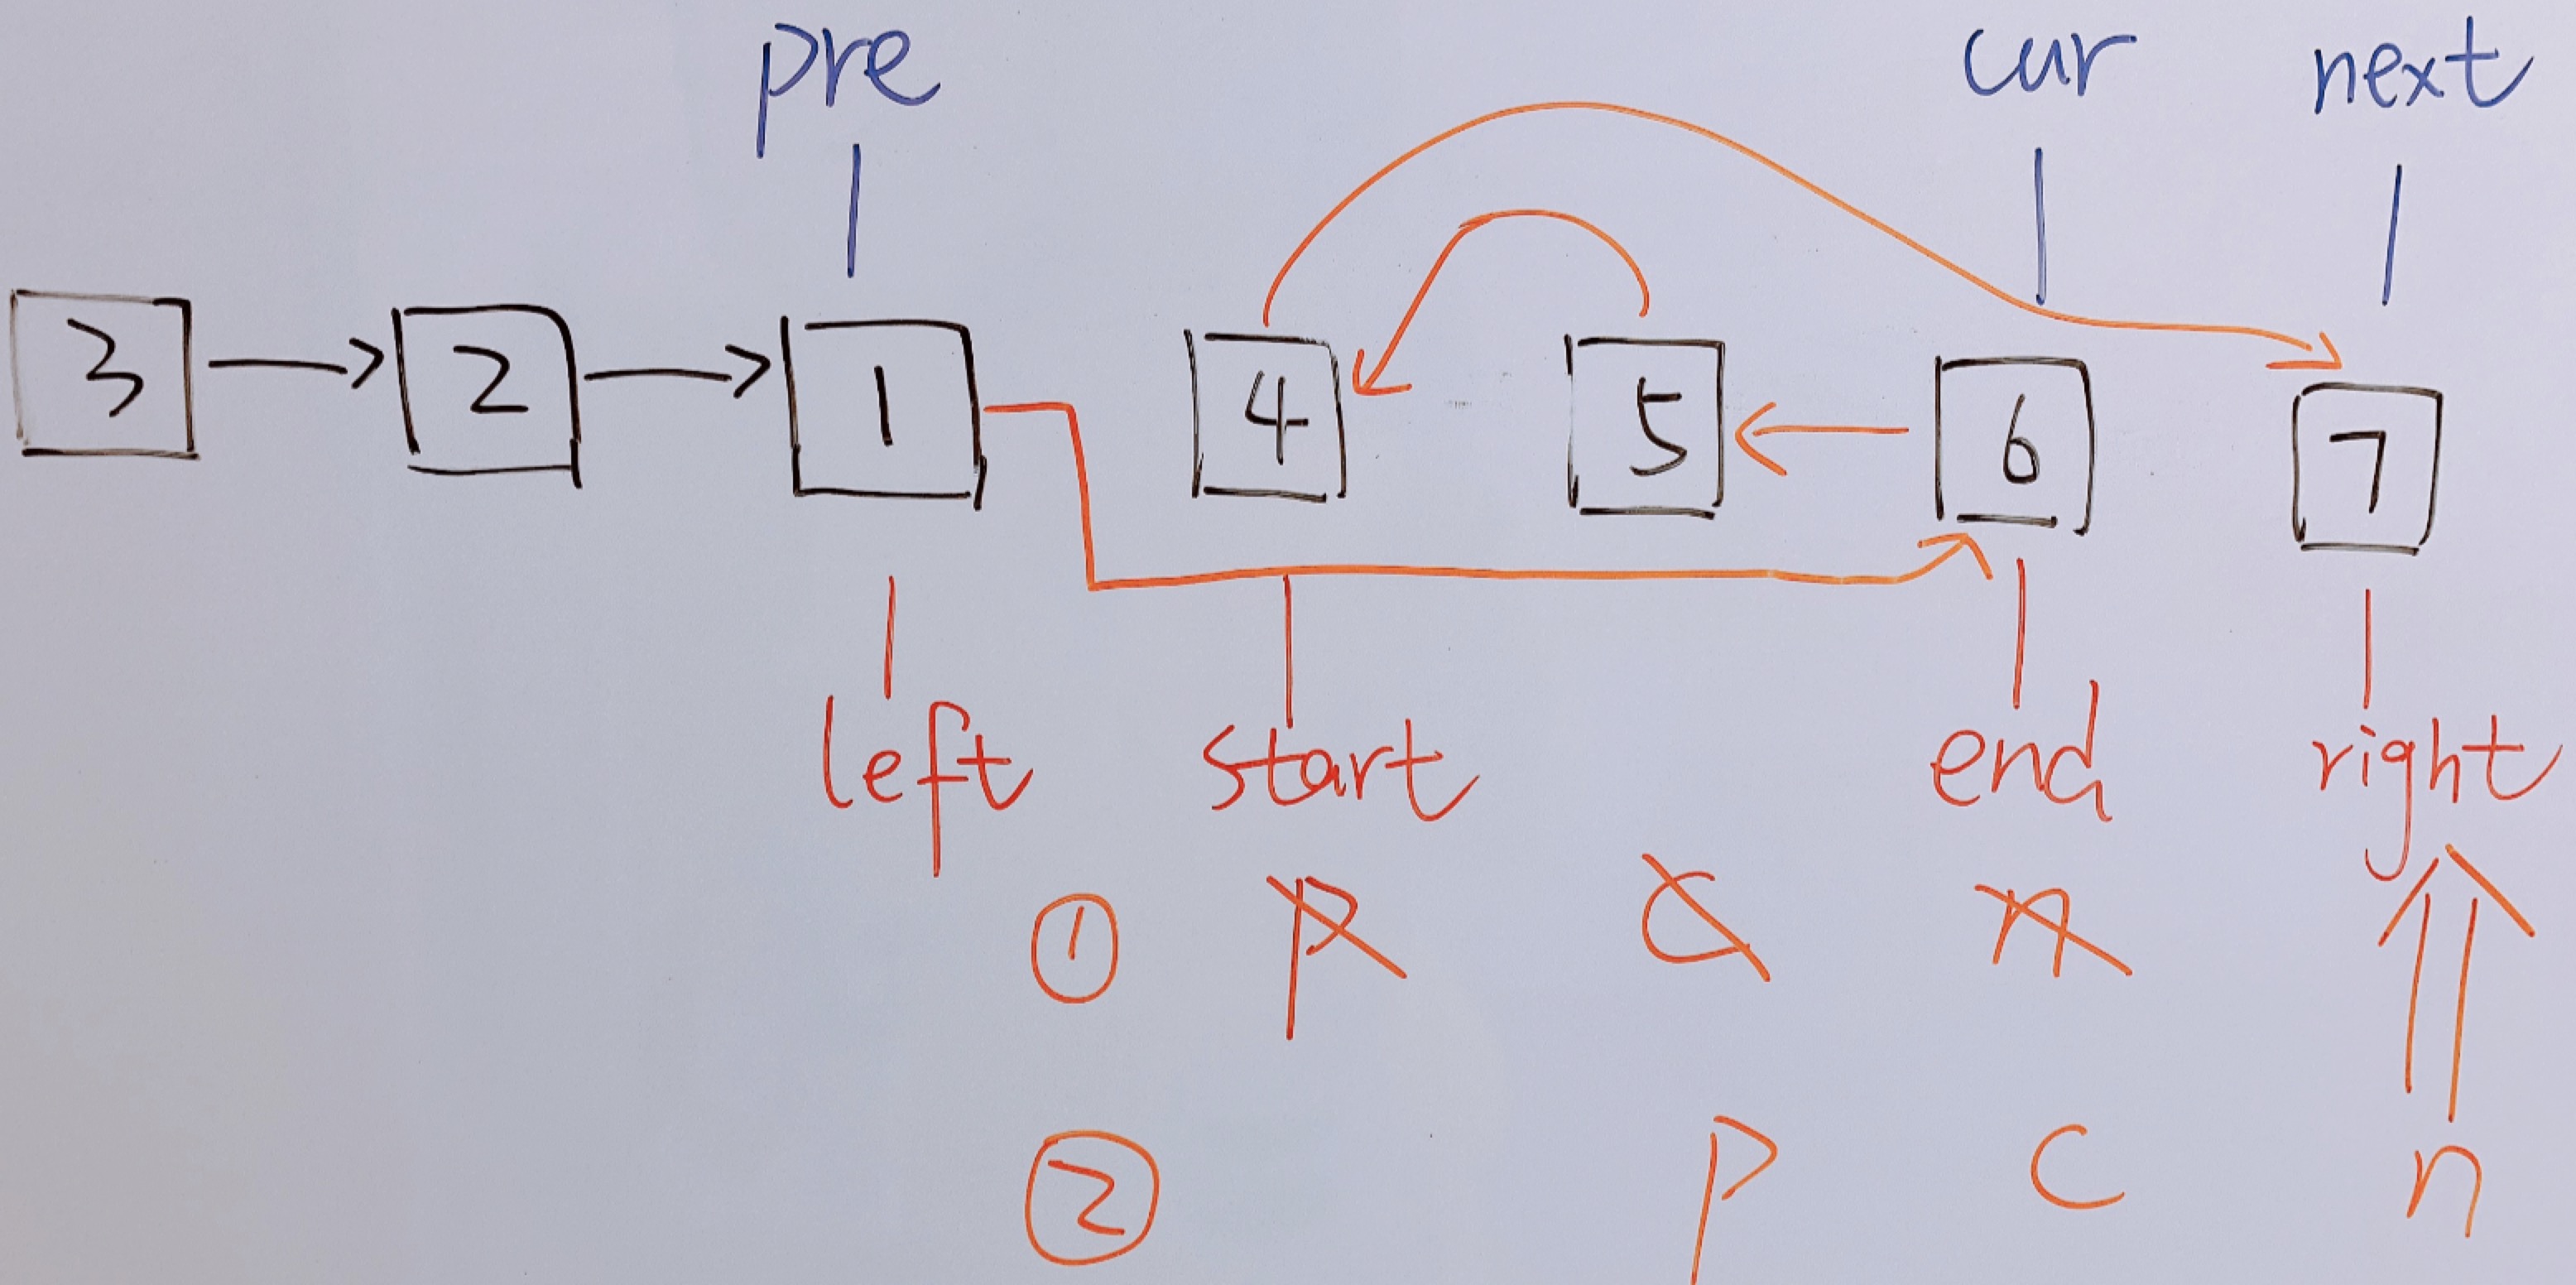 pre cur next
3 2 1 4 5 6 7
left start end right
① p c n
② p c n